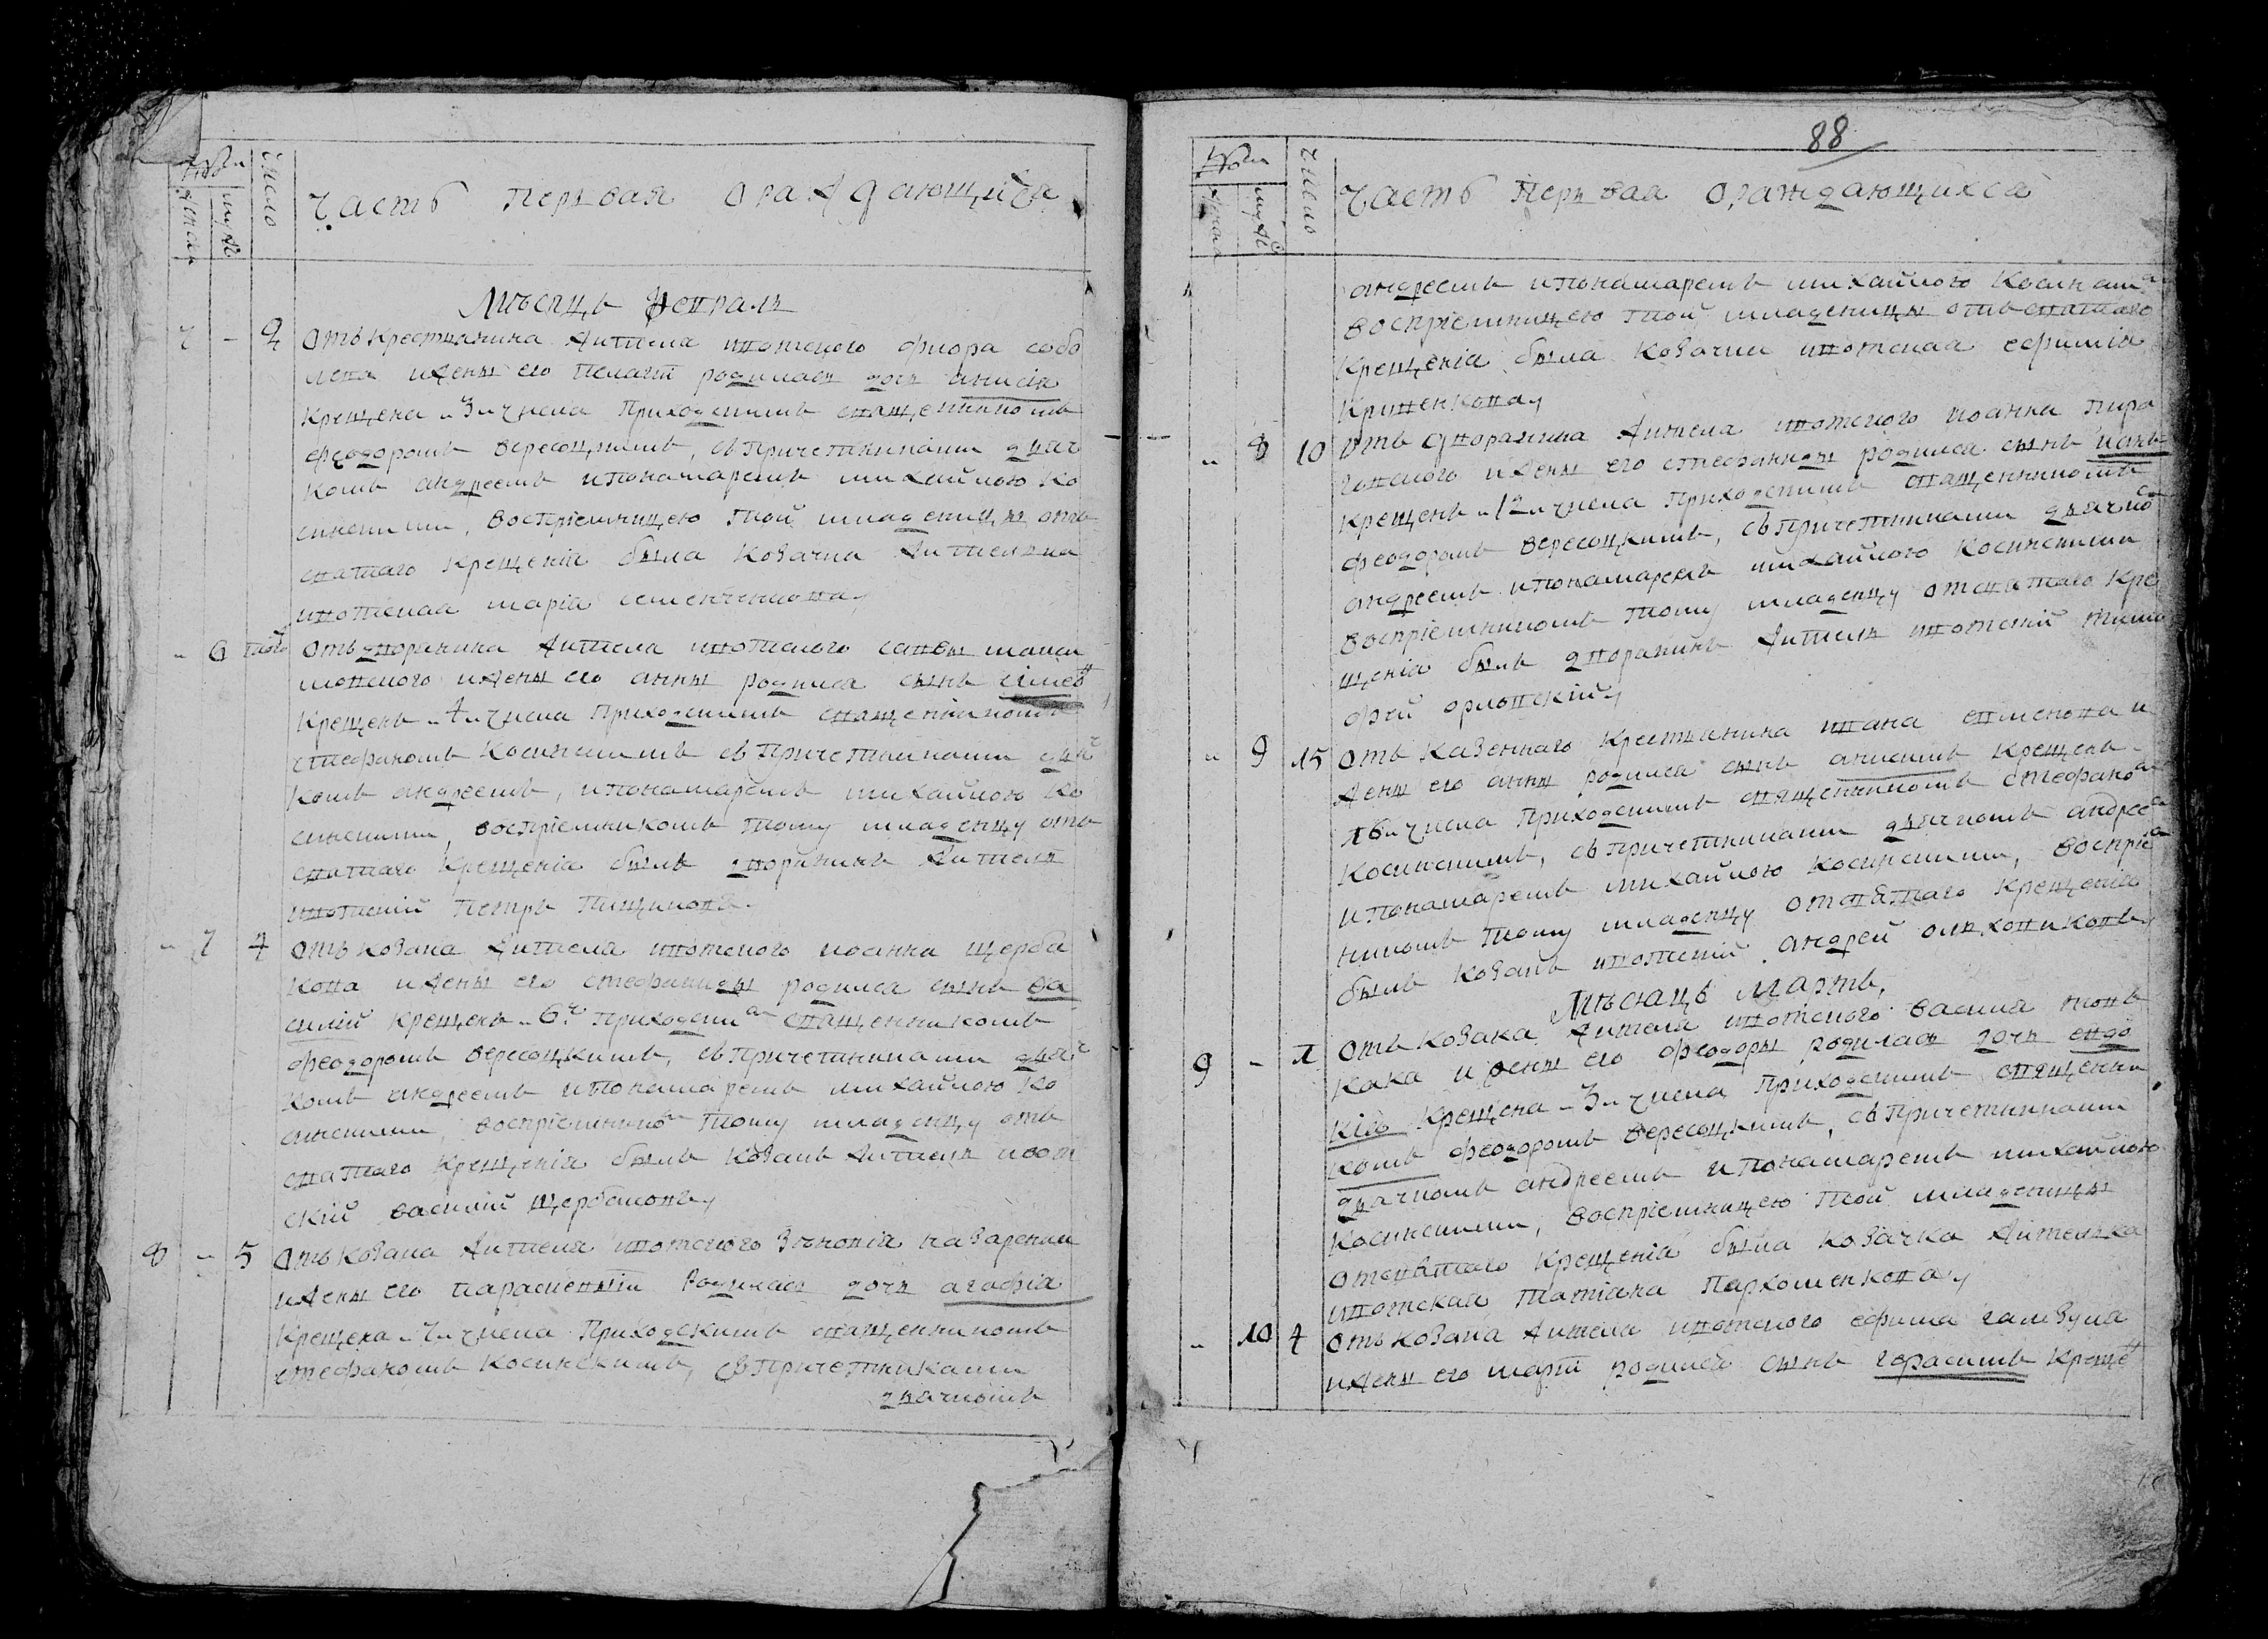 Число
Часть Первая о раждающихся
Мѣсяцъ Февраль
7 - 2 Отъ крестьянина жителя ивотского флора собо
лева и жены его пелагіи родилась дочь анисія
крещена 3 числа Приходскимъ священникомъ
феодоромъ вересоцкимъ, съ Причетниками дьяч
комъ андреемъ и пономаремъ михайлою ко
синскими, воспріемницею той младеницы отъ
святаго крещенія была козачка жителька
ивотская марія семенченкова
- 6 той Отъ дворянина жителя ивотского саввы
и жены его анны родился сынъ
крещенъ 4 числа Приходскимъ священникомъ
стефаномъ косинскимъ съ Причетниками дьяч
комъ андреемъ, и пономаремъ михайлою ко
синскими, воспріемникомъ тому младенцу отъ
святаго крещенія былъ дворянинъ житель
ивотскій петръ
- 7 4 Отъ козака жителя ивотского иоанна щерба
кова и жены его стефаниды родился сынъ ва
силій крещенъ 6 приходским священникомъ
феодоромъ вересоцкимъ, съ Причетниками дьяч
комъ андреемъ и пономаремъ михайлою ко
синскими, воспріемником тому младенцу отъ
святаго крещенія былъ козакъ житель ивот
скій василій щербаковъ
8 - 5 Отъ козака жителя ивотского зѣновія назаренка
и жены его параскевыи родилась дочь агафія
крещена 7 числа Приходскимъ священникомъ
стефаномъ косинскимъ, съ Причетниками
дьячкомъ
88
Число
Часть Первая о раждающихся
андреемъ и пономаремъ михайлою косинским
воспріемницею той младеницы отъ святаго
крещенія была козачка ивотская ефимія
- 8 10 Отъ дворянина жителя ивотского иоанна пиро
гожского и жены его стефаниды родился сынъ
крещенъ 12 числа Приходскимъ священникомъ
феодоромъ вересоцкимъ, съ Причетниками дьячко
андреемъ и пономаремъ михайлою косинскими
воспріемникомъ тому младенцу от святаго кре
щенія былъ дворянинъ житель ивотскій тимо
фей орловскій
- 9 15 Отъ казеннаго крестьянина ивана и
жены его анны родился сынъ анисимъ крещенъ
16 числа Приходскимъ священникомъ стефаном
косинскимъ, съ причетниками дьячкомъ андрее
и пономаремъ михайлою косинскими, воспріе
никомъ тому младенцу от святаго крещенія
былъ козакъ ивотскій андрей
Мѣсяцъ Мартъ,
9 - 1 Отъ козака жителя ивотского василя нов
кака и жены его феодоры родилась дочь евдо
кія крещена 3 числа Приходскимъ священни
комъ феодоромъ вересоцкимъ, съ Причетниками
дьячкомъ андреемъ и пономаремъ михайлою
косинскими, воспріемницею той младеницы
от святаго крещенія была козачка жителька
ивотская татіана пархоменкова
- 10 4 Отъ козака жителя ивотского ефима
и жены его марфи родился сынъ герасимъ креще